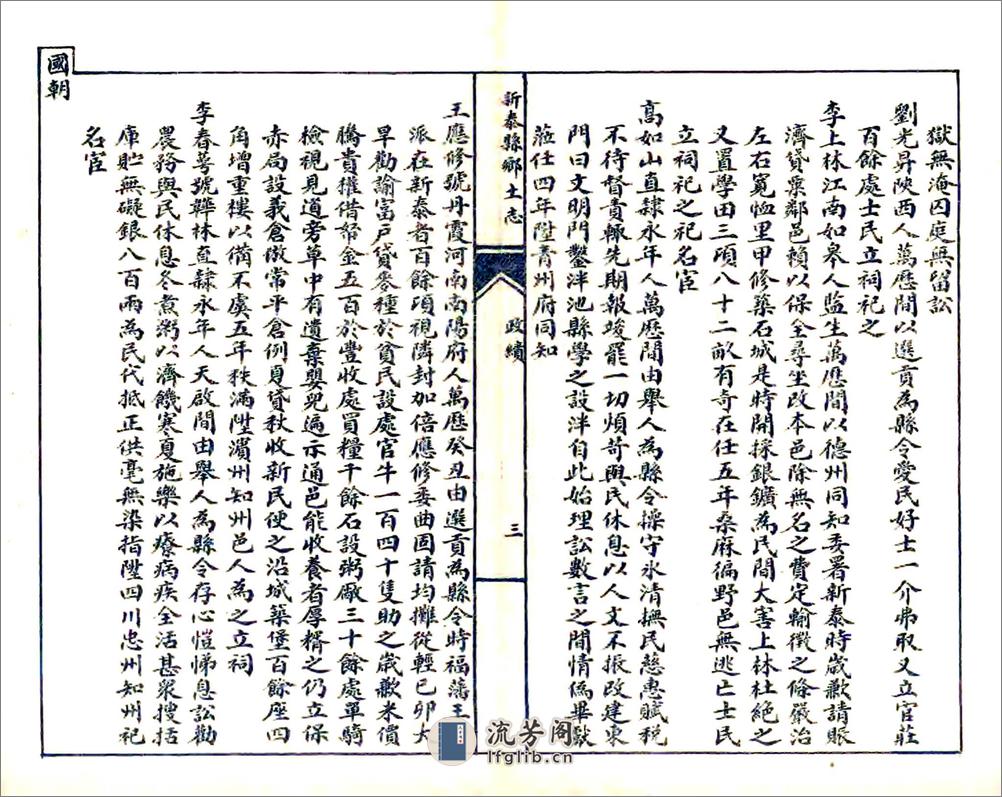 獄無淹囚庭無留訟
劉光昇陝西人萬歷間以選貢為縣令愛民好士一介弗取又立官莊
百餘處士民立祠祀之
李上林江南如皋人監生萬歷間以德州同知委署新泰時歲歉請賑
濟貸粟鄰邑賴以保全尋坐改本邑除無名之費定輸徵之條嚴治
左右寬恤里甲修築石城是時開採銀鑛為民間大害上林杜絕之
又置學田三項八十二畝有奇在任五年桑麻徧野邑無逃亡士民
立祠祀之祀名宦
高如山直隸永年人萬歷間由舉人為縣令操守氷清撫民慈惠賦税
不待督責輒先期報竣罷一切煩苛與民休息以人文不振改建東
門曰文明門鑿泮池縣學之設泮自此始理訟數言之間情偽畢獻
蒞任四年陞青州府同知
新泰縣鄉土志
政績
三
王應修號丹霞河南南陽府人萬歷癸丑由選貢為縣令時福藩王
派在新泰者百餘項視隣封加倍應修委曲固請均攤從輕已卯大
旱勸諭富戶貸麥種於貧民設處官牛一百四十隻助之歲歉米價
騰貴權借帑金五百於豐收處買糧千餘石設粥廠三十餘處單騎
檢視見道旁草中有遺棄嬰兒遍示通邑能收養者厚糈之仍立保
赤局設義倉倣常平倉例夏貸秋收新民便之沿城築堡百餘座四
角增重樓以備不虞五年秩滿陞濱州知州邑人為之立祠
李春萼號韡林直隸永年人天啟間由舉人為縣令存心愷悌息訟勸
農務與民休息冬煮粥以濟饑寒夏施藥以療病疾全活甚衆搜括
庫貯無礙銀八百兩為民代抵正供毫無染指陞四川忠州知州祀
名宦
國朝
流芳阁
lfglib.cn